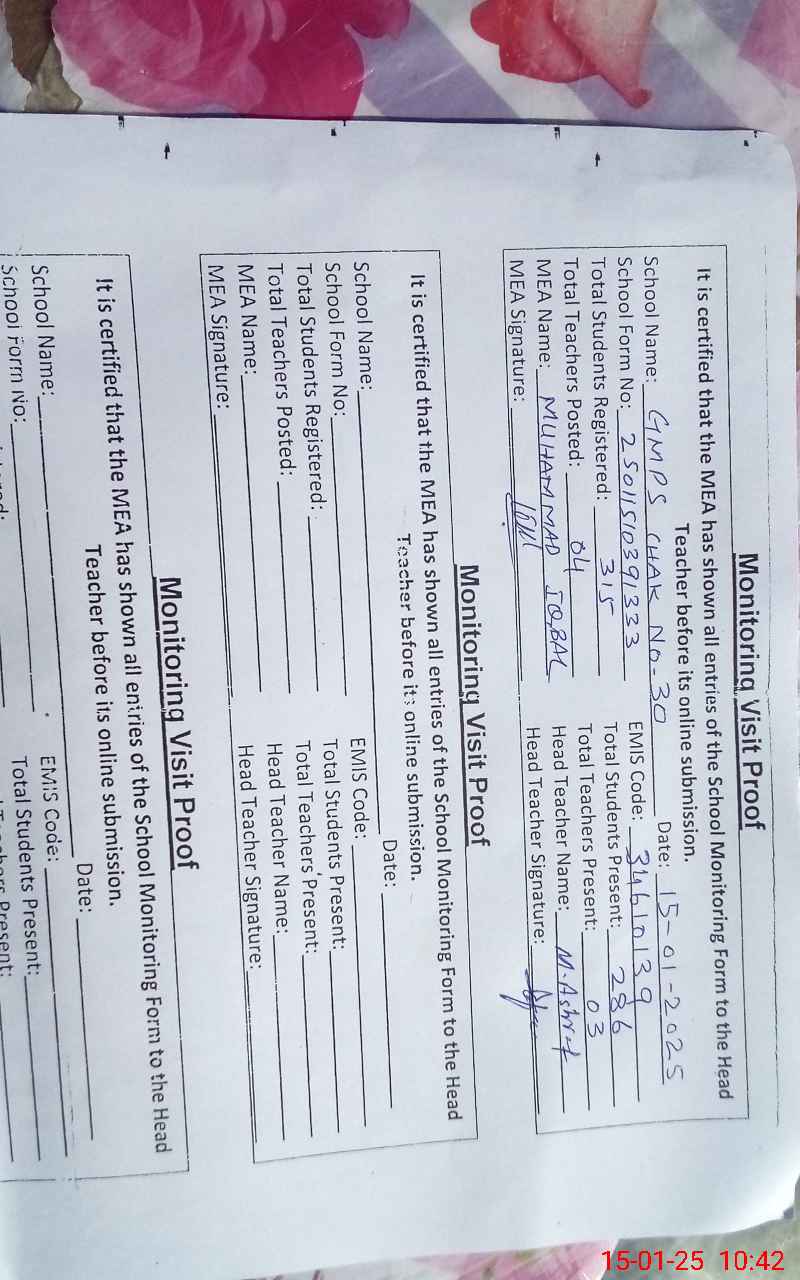 Monitoring Visit Proof
It is certified that the MEA has shown all entries of the School Monitoring Form to the Head
Teacher before its online submission.
School Name: GMPS CHAK No-30 Date: 15-01-2025
School Form No: 25011510391333 EMIS Code: 34610139
Total Students Registered: 315 Total Students Present: 286
Total Teachers Posted: 04 Total Teachers Present: 03
MEA Name: MUHAMMAD IQBAL Head Teacher Name: M. Ashraf
MEA Signature: Head Teacher Signature:
Monitoring Visit Proof
It is certified that the MEA has shown all entries of the School Monitoring Form to the Head
Teacher before its online submission.
School Name: Date:
School Form No: EMIS Code:
Total Students Registered: Total Students Present:
Total Teachers Posted: Total Teachers Present:
MEA Name: Head Teacher Name:
MEA Signature: Head Teacher Signature:
Monitoring Visit Proof
It is certified that the MEA has shown all entries of the School Monitoring Form to the Head
Teacher before its online submission.
School Name: Date:
School Form No: EMIS Code:
Total Students Present:
15-01-25 10:42